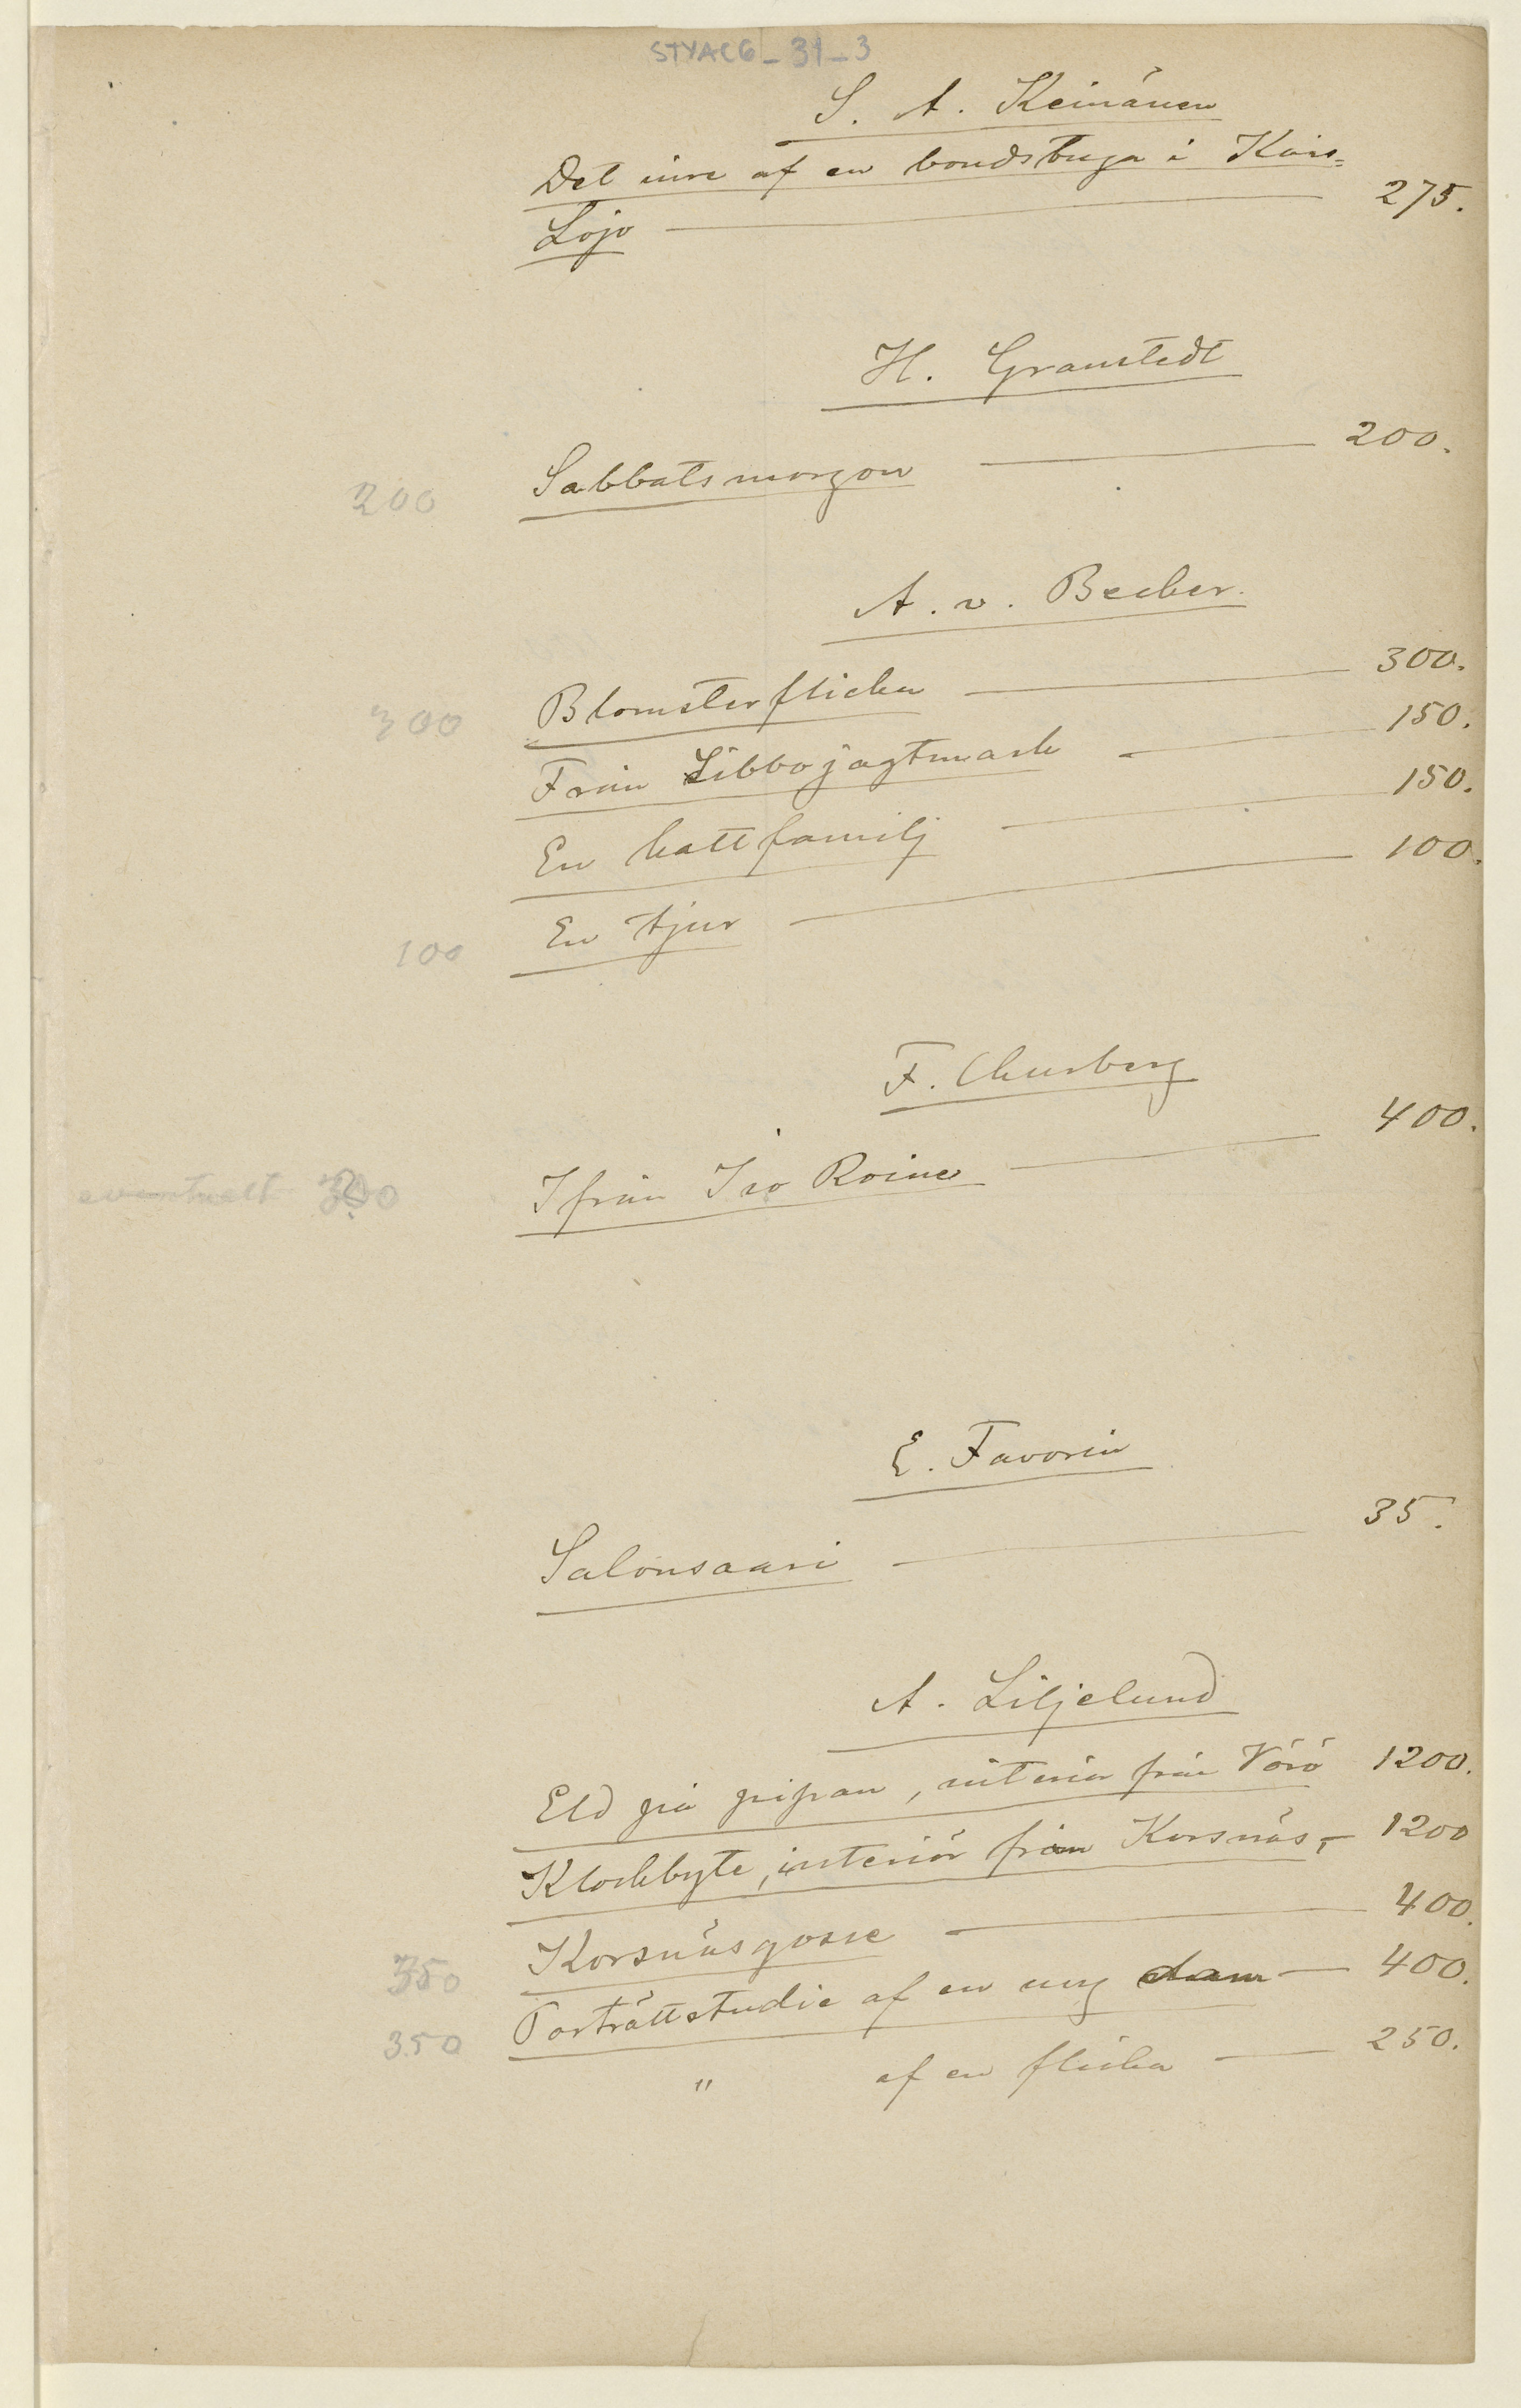 STYAC6_31_3
S. A. Keinänen
Det inre af en bondstuga i Karis=
Lojo — 275.
H. Granstedt
200 Sabbatsmorgon — 200.
A. v. Becker.
300 Blomsterflickan — 300.
Från Sibbo jagtmark — 150.
En kattfamilj — 150.
100 En tjur — 100.
F. Churberg
eventuelt Ifrån Iso Roine — 400.
E. Favorin
Salonsaari — 35.
A. Liljelund
Eld på pipan, interiör från Vörå 1200.
Klockbyte, interiör från Korsnäs, — 1200
Korsnäsgosse — 400.
350 Porträttstudie af en ung dam — 400.
350 " af en flicka — 250.